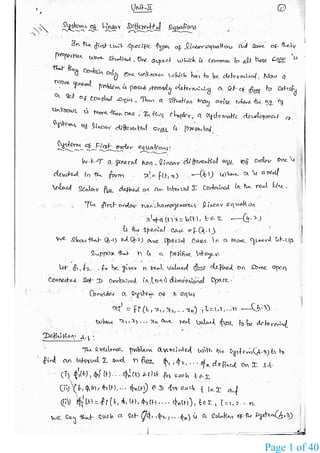 Unit-II
①
Systems of Linear Differential Equations
In the first unit specific types of linear equations and some of their
properties were studied. One aspect which is common to all these eqns is
that they contain only one unknown which has to be determined. Now a
more general problem is posed namely determining a set of fns to satisfy
a set of coupled eqns. Thus a situation may arise where the no of
unknowns is more than one. In this chapter, a systematic development of
systems of linear differential eqns is presented.
System of First order equations:
W.K.T a general non-linear differential eqn of order one is
denoted in the form x' = f(t, x) —(4.1) where x is a real
valued scalar fn defined on an interval I contained in the real line.
The first order non-homogeneous linear equation
x' + a(t)x = b(t), t ∈ I —(4.2)
is the special case of (4.1)
We show that (4.1) and (4.2) are special cases in a more general set-up
Suppose that n is a positive integer.
Let f1, f2... fn be given n real valued fns defined on some open
connected set D contained in (n+1) dimensional space.
Consider a system of n eqns
xi' = fi (t, x1, x2, ... xn), i=1,2,...n —(4.3)
where x1, x2, ... xn are real valued fns to be determined.
Definition: 4.1:
The existence problem associated with the system (4.3) is to
find an interval I and n fns φ1, φ2, ... φn defined on I s.t
(i) φ1'(t), φ2'(t) ... φn'(t) exist for each t ∈ I
(ii) (t, φ1(t), φ2(t), ... φn(t)) ∈ D for each t in I and
(iii) φi'(t) = fi (t, φ1(t), φ2(t), ... φn(t)), t ∈ I, i=1,2...n
we say that such a set (φ1, φ2, ... φn) is a solution of the system (4.3)
Page 1 of 40